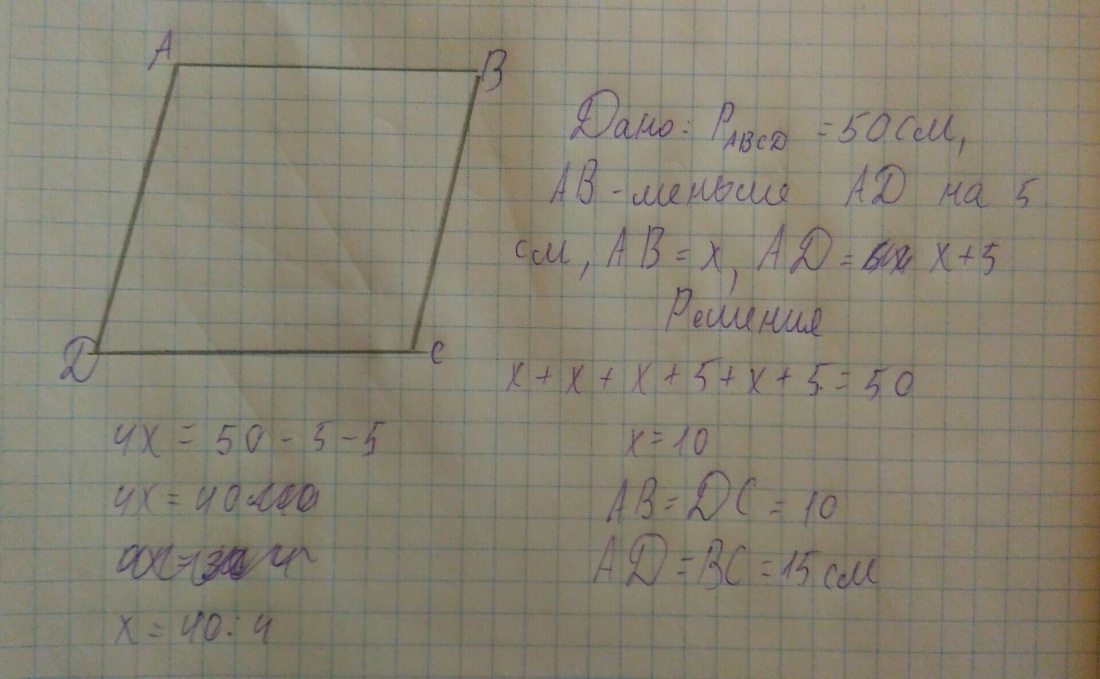 A
B
D
C
Дано: P_ABCD = 50 см,
AB - меньше AD на 5
см, AB = x, AD = x + 5
Решения
x + x + x + 5 + x + 5 = 50
4x = 50 - 5 - 5
4x = 40
x = 40 : 4
x = 10
AB = DC = 10
AD = BC = 15 см